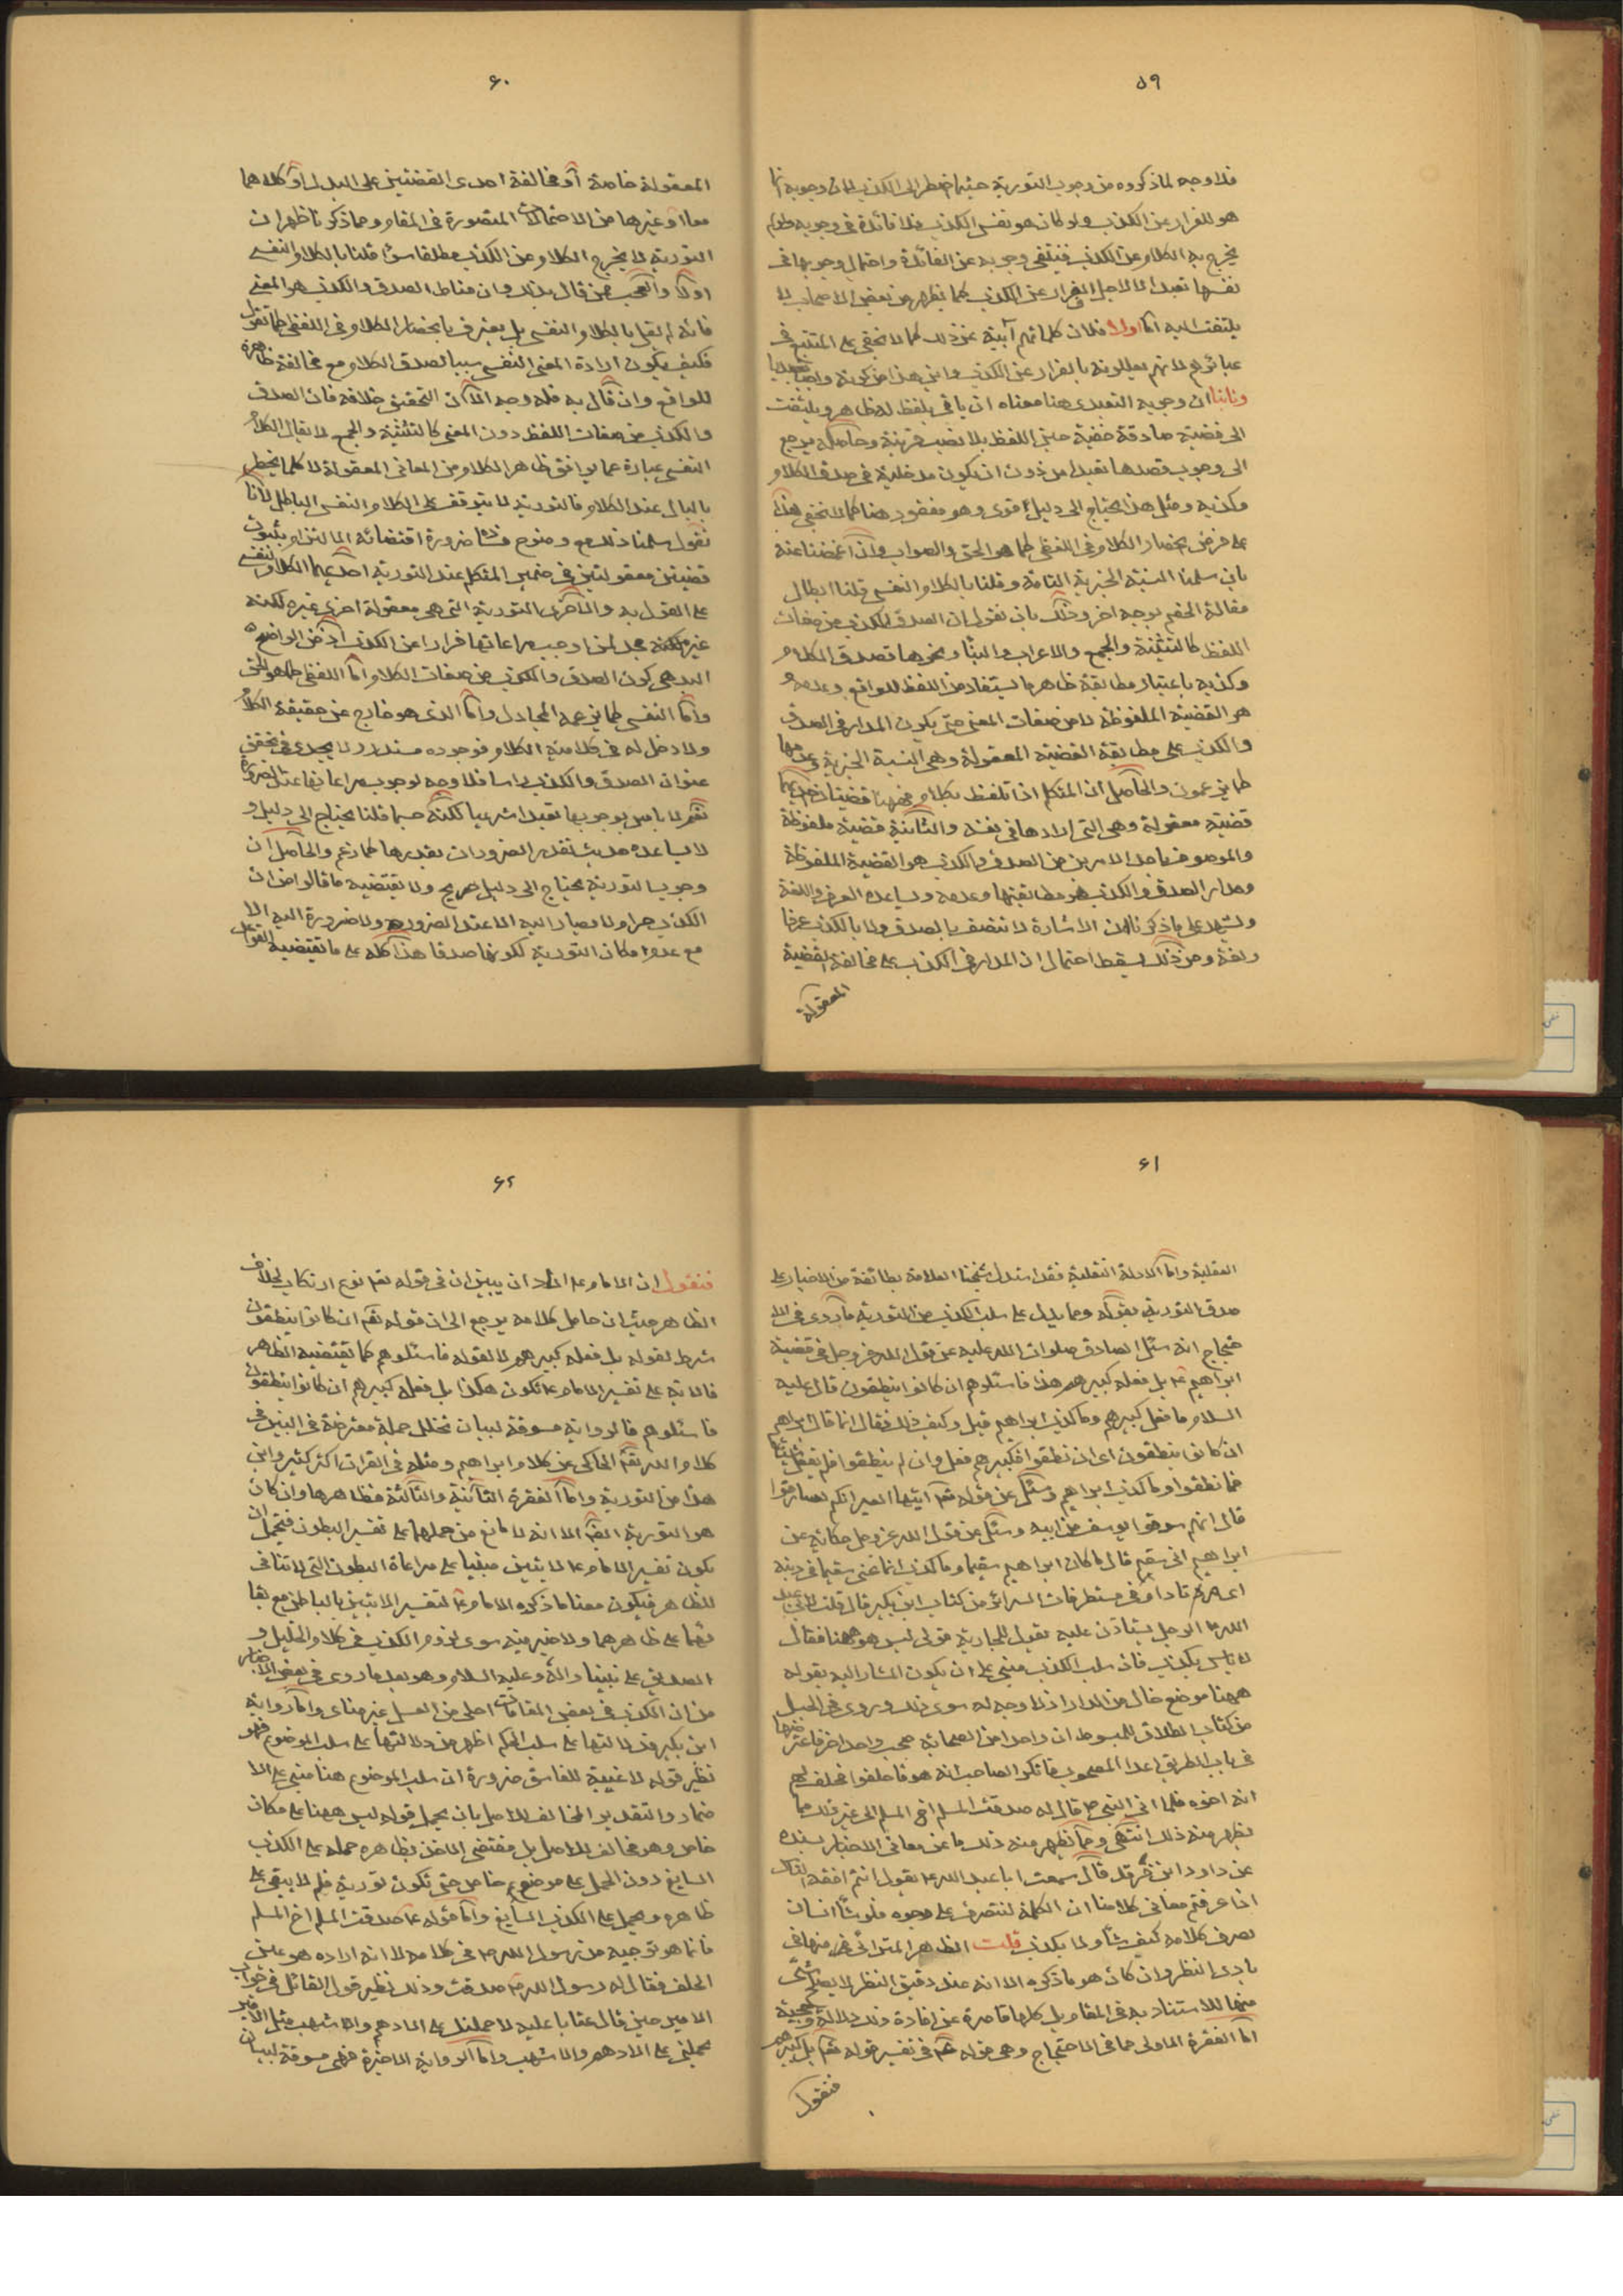 ٥٩
فلا وجه لما ذكروه من وجوب التورية حيثما اضطر الى الكذب لان وجوبه انما
هو للفرار عن الكذب ولو كان هو نفس الكذب فلا فائدة في وجوبه ولو لم
يخرج به الكلام عن الكذب فينتفي وجوبه عن الفائدة واحتمال وجوبها في
نفسها تعبدا لا لاجل الفرار عن الكذب كما يظهر من بعض الاصحاب لا
يلتفت اليه اما اولا فلان كلماتهم آبية عن ذلك كما لا يخفى على المتتبع في
عبائرهم لانهم يعللونه بالفرار عن الكذب واين هذا من كونه واجبا تعبديا
وثانيا ان وجوبه التعبدى هنا معناه ان ياتي بلفظ له ظاهر ويلتفت
الى قضية صادقة خفية حين اللفظ بلا نصب قرينة وحاصله يرجع
الى وجوب قصدها تعبدا من دون ان يكون مدخلية في صدق الكلام
وكذبه ومثل هذا يحتاج الى دليل اقوى وهو مفقود هنا كما لا يخفى هذا
على فرض انحصار الكلام في اللفظي كما هو الحق والصواب وان اغمضنا عنه
بان سلمنا النسبة الخبرية التامة وقلنا بالكلام النفسي قلنا ابطال
مقالة الخصم بوجه اخر وذلك بان نقول ان الصدق والكذب من صفات
اللفظ كالتثنية والجمع والاعراب والبناء ونحوها تصدق الكلام
وكذبه باعتبار مطابقة ظاهر ما يستفاد من اللفظ للواقع وعدمه و
هو القضية الملفوظة لا من صفات المعنى حتى يكون المدار في الصدق
والكذب على مطابقة القضية المعقولة وهي النسبة الخبرية وعدمها
كما يزعمون والحاصل ان المتكلم اذا تلفظ بكلام فهنا قضيتان احديهما
قضية معقولة وهي التي ارادها في نفسه والثانية قضية ملفوظة
والموصوف باحد الامرين من الصدق والكذب هو القضية الملفوظة
ومدار الصدق والكذب هو مطابقتها وعدمه ويساعده العرف واللغة
ويشهد على ما ذكرنا ان الاشارة لا تتصف بالصدق ولا بالكذب عرفا
ولغة ومن ذلك يسقط احتمال ان المدار في الكذب على مخالفة القضية
المعقولة
٦٠
المعقولة خاصة او مخالفة احدى القضتين على البدل او كلاهما
معا او غيرها من الاحتمالات المتصورة في المقام ومما ذكرنا ظهر ان
التورية لا يخرج الكلام عن الكذب مطلقا سواء قلنا بالكلام النفسي
اولا والعجب ممن قال بذلك وان مناط الصدق والكذب هو المعنى
فانه لم يقل بالكلام النفسي بل يعترف بانحصار الكلام في اللفظي كما نقول
فكيف يكون ارادة المعنى النفسي سببا لصدق الكلام مع مخالفة ظاهره
للواقع وان قال به فله وجه الا ان التحقيق خلافه فان الصدق
والكذب من صفات اللفظ دون المعنى كالتثنية والجمع لا يقال الكلام
النفسي عبارة عما يوافق ظاهر الكلام من المعاني المعقولة لا كلما يخطر
بالبال عند الكلام فالتورية لا يتوقف على الكلام النفسي الباطل لانا
نقول سلمنا ذلك مع وضوح فساده ضرورة اقتضائه الى التزام بثبوت
قضيتين معقولتين في ضمير المتكلم عند التورية احديهما الكلام النفسي
على القول به والاخرى التورية التي هي معقولة اخرى غيره لكنه
غير مجد لمن اوجب مراعاتها فرارا عن الكذب اذ من الواضح
البديهي كون الصدق والكذب من صفات الكلام اما اللفظي كما هو الحق
واما النفسي كما يزعمه المجادل واما الذى هو خارج عن حقيقة الكلام
ولا دخل له في كلامية الكلام فوجوده مستدرك لا يجدى في تحقق
عنوان الصدق والكذب راسا فلا وجه لوجوب مراعاتها عند الضرورة
نعم لا باس بوجوبها تعبدا شرعيا لكنه حسبما قلنا يحتاج الى دليل و
لا يساعده حديث تقدر الضرورات بقدرها كما زعم والحاصل ان
وجوب التورية يحتاج الى دليل صريح ولا يقتضيه ما قالوا من ان
الكذب حرام ولا يصار اليه الا عند الضرورة ولا ضرورة اليه الا
مع عدم امكان التورية لكونها صدقا هذا كله على ما تقتضيه القواعد
٦١
العقلية واما الادلة النقلية فقد استدل شيخنا العلامة بطائفة من الاخبار على
صدق التورية بقوله ومما يدل على سلب الكذب عن التورية ما روى في الا
حتجاج انه سئل الصادق صلوات الله عليه عن قول الله عز وجل في قضية
ابراهيم ع بل فعله كبيرهم هذا فاسئلوهم ان كانوا ينطقون قال عليه
السلام ما فعل كبيرهم وما كذب ابراهيم قيل وكيف ذلك فقال انما قال ابراهيم
ان كانوا ينطقون اى ان نطقوا فكبيرهم فعل وان لم ينطقوا فلم يفعل شيئا
فما نطقوا وما كذب ابراهيم وسئل عن قوله تعم ايتها العير انكم لسارقون
قال انهم سرقوا يوسف من ابيه وسئل عن قول الله عز وجل حكاية عن
ابراهيم اني سقيم قال ما كان ابراهيم سقيما وما كذب انما عنى سقيما في دينه
اى مرتادا وفي مستطرفات السرائر من كتاب ابن بكير قال قلت لابي عبد
الله ع الرجل يستاذن عليه يقول للجارية قولي ليس هو هيهنا فقال
لا باس ليس بكذب فان سلب الكذب مبني على ان يكون المشار اليه بقوله
ههنا موضع خال من الدار اذ لا وجه له سوى ذلك وروى في الحيل
من كتاب الطلاق للمبسوط ان واحدا من الصحابة صحب واحدا اخر فاعترضهما
في باب الطريق اعداء المصحوب فانكر الصاحب انه هو فاحلفوا فحلف لهم
انه اخوه فلما اتى النبي ص قال له صدقت المسلم اخ المسلم الى غير ذلك مما
يظهر منه ذلك انتهى ومما يظهر منه ذلك ما عن معاني الاخبار بسنده
عن داود ابن فرقد قال سمعت ابا عبد الله ع يقول انتم افقه الناس
اذا عرفتم معاني كلامنا ان الكلمة لتنصرف على وجوه فلو شاء انسان
لصرف كلامه كيف شاء ولا يكذب قلت الظاهر المترائى من منها في
بادى النظر وان كان هو ما ذكره الا انه عند دقيق النظر لا يصلح شيء
منها للاستناد به في المقام بل كلها قاصرة عن افادة ذلك دلالة وحجية
اما الفقرة الاولى مما في الاحتجاج وهي قوله ع في تفسير قوله تعم بل كبيرهم
فنقول
٦٢
فنقول ان الامام ع اراد ان يبين ان في قوله تعم نوع ارتكاب لخلاف
الظاهر حيث ان حاصل كلامه يرجع الى ان قوله تعم ان كانوا ينطقون
شرط لقوله بل فعله كبيرهم لا لقوله فاسئلوهم كما يقتضيه الظاهر
فالاية على تفسير الامام ع تكون هكذا بل فعله كبيرهم ان كانوا ينطقون
فاسئلوهم فالرواية مسوقة لبيان تخلل جملة معترضة في البين في
كلام الله تعم الحاكي عن كلام ابراهيم ومثله في القران اكثر كثير واين
هذا من التورية واما الفقرة الثانية والثالثة فظاهرها وان كان
هو التورية ايضا الا انه لا مانع من حملهما على تفسير البطون فيحتمل ان
يكون تفسير الامام ع الايتين مبنيا على مراعاة البطون التي لا تنافى
الظاهر فيكون معنا ما ذكره الامام ع لتفسير الايتين بالباطن مع بقا
ئهما على ظاهرهما ولا ضير فيه سوى لزوم الكذب في كلام الخليل و
الصديق على نبينا واله وعليه السلام وهو بعد ما روى في بعض الاخبار
من ان الكذب في بعض المقامات احلى من العسل غير مناف واما رواية
ابن بكير فدلالتها على سلب الحكم اظهر من دلالتها على سلب الموضوع فهو
نظير قوله لا غيبة للفاسق ضرورة ان سلب الموضوع هنا مبني على الا
ضمار والتقدير المخالف للاصل بان يحمل قوله ليس ههنا على مكان
خاص وهو مخالف للاصل بل مقتضى الاخذ بظاهره حمله على الكذب
السايغ دون الحمل على موضوع خاص حتى تكون تورية فلم لا يبقى على
ظاهره ويحمل على الكذب السايغ واما قوله ع صدقت المسلم اخ المسلم
فانما هو توجيه من رسول الله ص في كلامه لا انه اراده هو حين
الحلف فقال له رسول الله ص صدقت وذلك نظير قول القائل في جواب
الامير حين قال عتابا عليه لاحملنك على الادهم والاشهب مثل الامير
يحملني على الادهم والاشهب واما الرواية الاخيرة فهي مسوقة لبيان